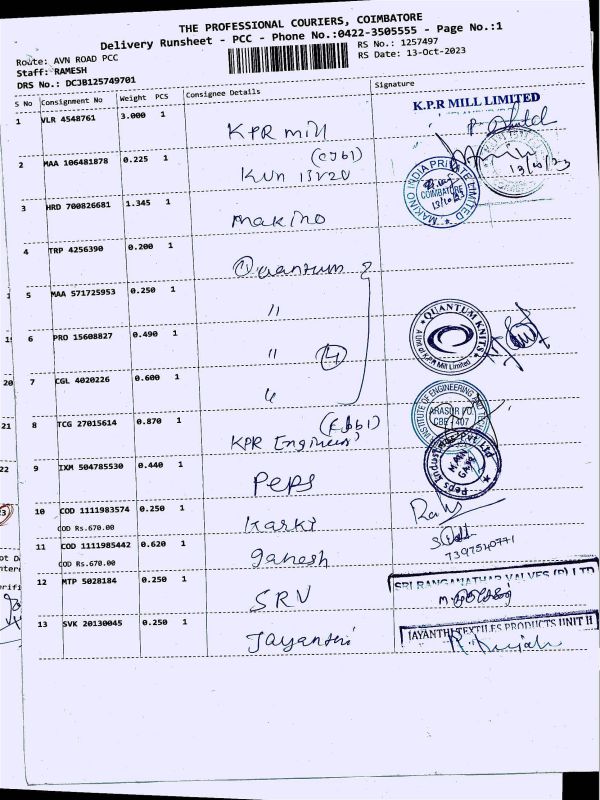 THE PROFESSIONAL COURIERS, COIMBATORE
Delivery Runsheet - PCC - Phone No.:0422-3505555 - Page No.:1
Route: AVN ROAD PCC
RS No.: 1257497
Staff: RAMESH
RS Date: 13-Oct-2023
DRS No.: DCJB125749701
S No Consignment No Weight PCS Consignee Details Signature
K.P.R MILL LIMITED
1 VLR 4548761 3.000 1 KPR mill
2 MAA 106481878 0.225 1
MAKINO INDIA PRIVATE LIMITED
COIMBATORE
13/10/23
3 HRD 700826681 1.345 1 makino
4 TRP 4256390 0.200 1 Quantum
5 MAA 571725953 0.250 1 "
QUANTUM KNITS
A Unit of K.P.R Mill Limited
6 PRO 15608827 0.490 1 " 4
20 7 CGL 4020226 0.600 1 "
INSTITUTE OF ENGINEERING AND
ARASUR PO.
21 8 TCG 27015614 0.870 1
CBE 407
KPR Engineer
Peps Industries Pvt Ltd
MAIN GATE
22 9 IXM 504785530 0.440 1 Peps
10 COD 1111983574 0.250 1 Karki
COD Rs.670.00
11 COD 1111985442 0.620 1 ganesh
7397540771
COD Rs.670.00
12 MTP 5028184 0.250 1 SRV
SRI RANGANATHAR VALVES (P) LTD
13 SVK 20130045 0.250 1 Jayanthi
JAYANTHI TEXTILES PRODUCTS UNIT II